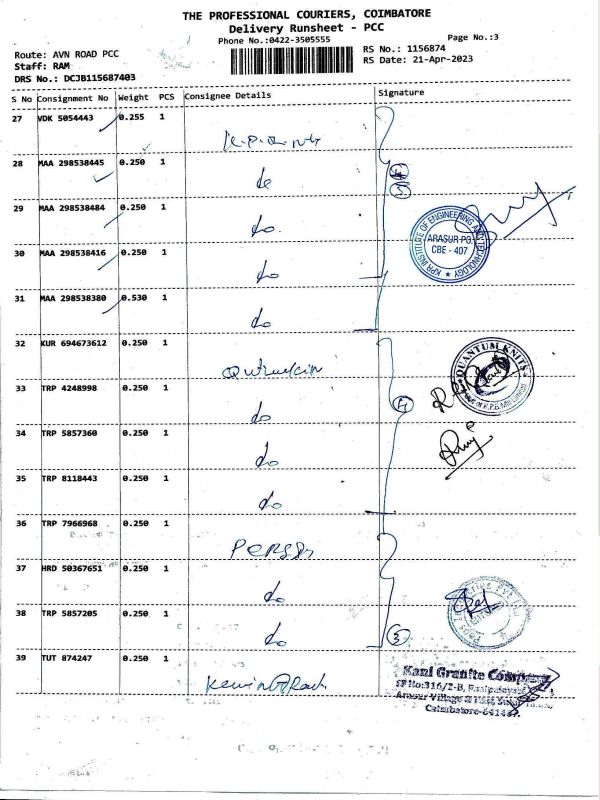 THE PROFESSIONAL COURIERS, COIMBATORE
Delivery Runsheet - PCC
Phone No.:0422-3505555
Page No.:3
Route: AVN ROAD PCC
RS No.: 1156874
Staff: RAM
RS Date: 21-Apr-2023
DRS No.: DCJB115687403
S No Consignment No Weight PCS Consignee Details Signature
27 VDK 5054443 0.255 1
28 MAA 298538445 0.250 1 do
29 MAA 298538484 0.250 1 do
30 MAA 298538416 0.250 1 do
31 MAA 298538380 0.530 1 do
KPR INSTITUTE OF ENGINEERING AND TECHNOLOGY
ARASUR PO.
CBE - 407
32 KUR 694673612 0.250 1
QUANTUM KNITS
33 TRP 4248998 0.250 1 do
34 TRP 5857360 0.250 1 do
35 TRP 8118443 0.250 1 do
36 TRP 7966968 0.250 1
37 HRD 50367651 0.250 1 do
38 TRP 5857205 0.250 1 do
3
39 TUT 874247 0.250 1
Kazi Granite Company
SF No:316/2-B,
Arasur Village &
Coimbatore-641407.